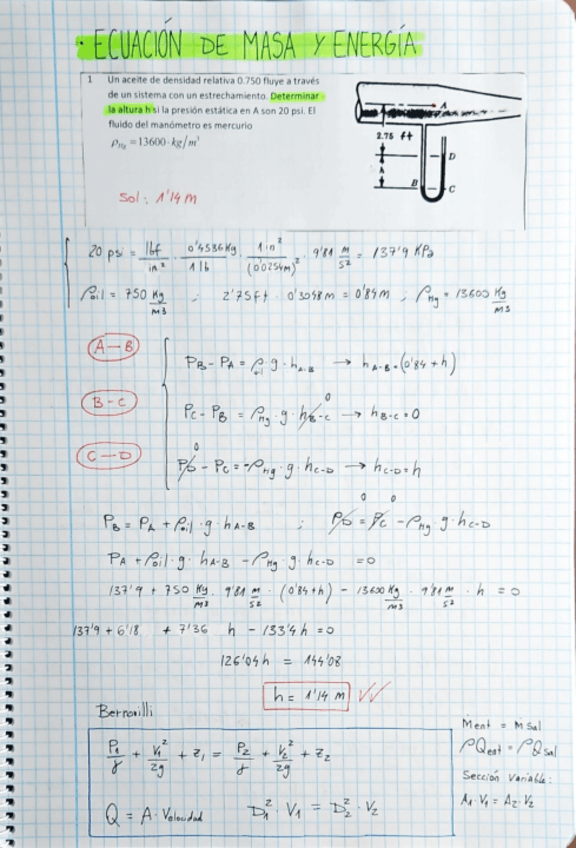 · ECUACIÓN DE MASA Y ENERGÍA
1 Un aceite de densidad relativa 0.750 fluye a través
de un sistema con un estrechamiento. Determinar
la altura h si la presión estática en A son 20 psi. El
fluido del manómetro es mercurio
ρHg = 13600·kg/m³
Sol: 1'14 m
A
2.75 ft
D
h
B
C
20 psi = lbf/in² · 0'4536Kg/1 lb · 1 in²/(0'0254m)² · 9'81 m/s² = 137'9 KPa
ρoil = 750 Kg/m3 ; 2'75ft · 0'3048m = 0'84m ; ρHg = 13600 Kg/m3
A — B PB - PA = ρoil · g · hA-B → hA-B = (0'84 + h)
B - C PC - PB = ρHg · g · hB-C 0 → hB-C = 0
C — D PD 0 - PC = -ρHg · g · hC-D → hC-D = h
PB = PA + ρoil · g · hA-B ; PD 0 = PC 0 - ρHg · g · hC-D
PA + ρoil · g · hA-B - ρHg · g · hC-D = 0
137'9 + 750 Kg/m3 · 9'81 m/s² · (0'84+h) - 13600 Kg/m3 · 9'81 m/s² · h = 0
137'9 + 6'18 + 7'36 h - 133'4 h = 0
126'04 h = 144'08
h = 1'14 m
Bernouilli
P1/γ + V1²/2g + Z1 = P2/γ + V2²/2g + Z2
Q = A · Velocidad D1² · V1 = D2² · V2
ment = m sal
ρQent = ρQsal
Sección Variable:
A1 · V1 = A2 · V2